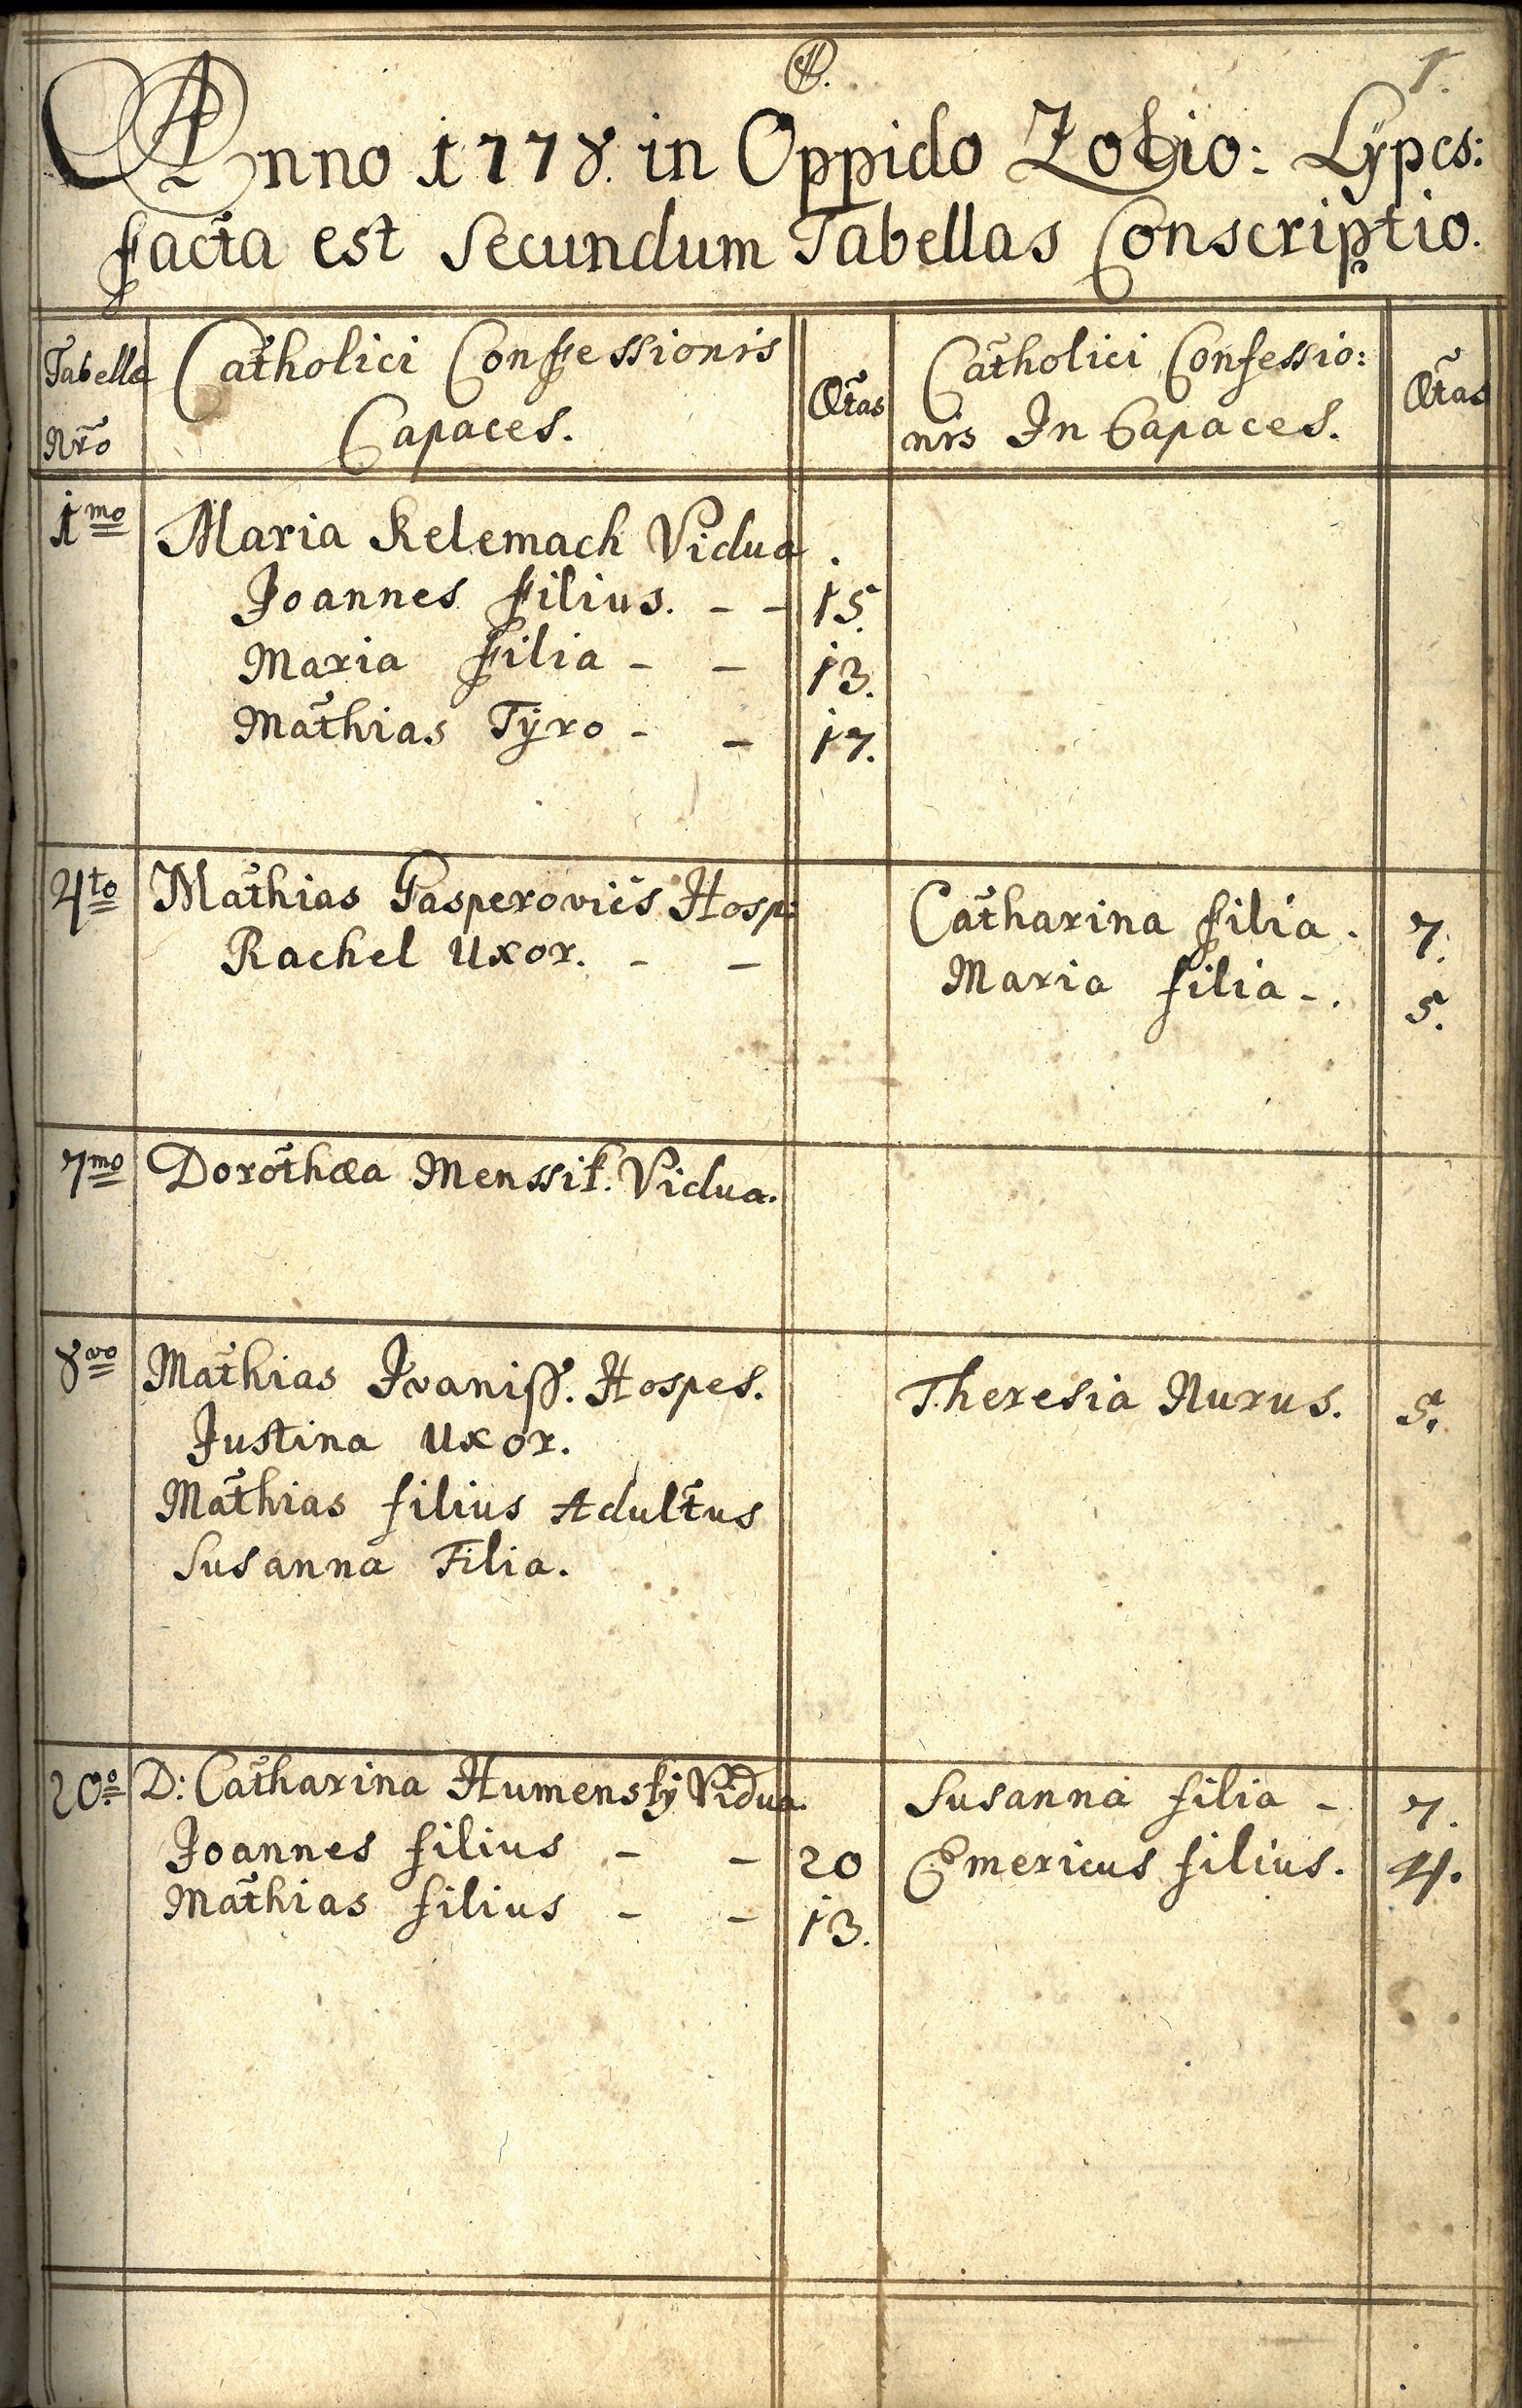 1.
Anno 1778. in Oppido Zolio: Lÿpcs:
facta est Secundum Tabellas Conscriptio.
Tabella
Nro
Catholici Confessionis
Capaces.
Ætas
Catholici Confessio:
nis In Capaces.
Ætas
1mo
Maria Kelemach Vidua.
Joannes Filius. - - 15.
Maria Filia - - 13.
Mathias Tÿro - - 17.
4to
Mathias Gasperovics Hosp:
Rachel Uxor. - -
Catharina filia. 7.
Maria filia -. 5.
7mo
Dorothæa Menssik. Vidua.
8vo
Mathias Ivaniss. Hospes.
Justina Uxor.
Mathias filius Adultus
Susanna Filia.
Theresia Nurus. 5.
20o
D: Catharina Humenskÿ Vidua.
Joannes filius - - 20
Mathias filius - - 13.
Susanna filia - 7.
Emericus filius. 4.